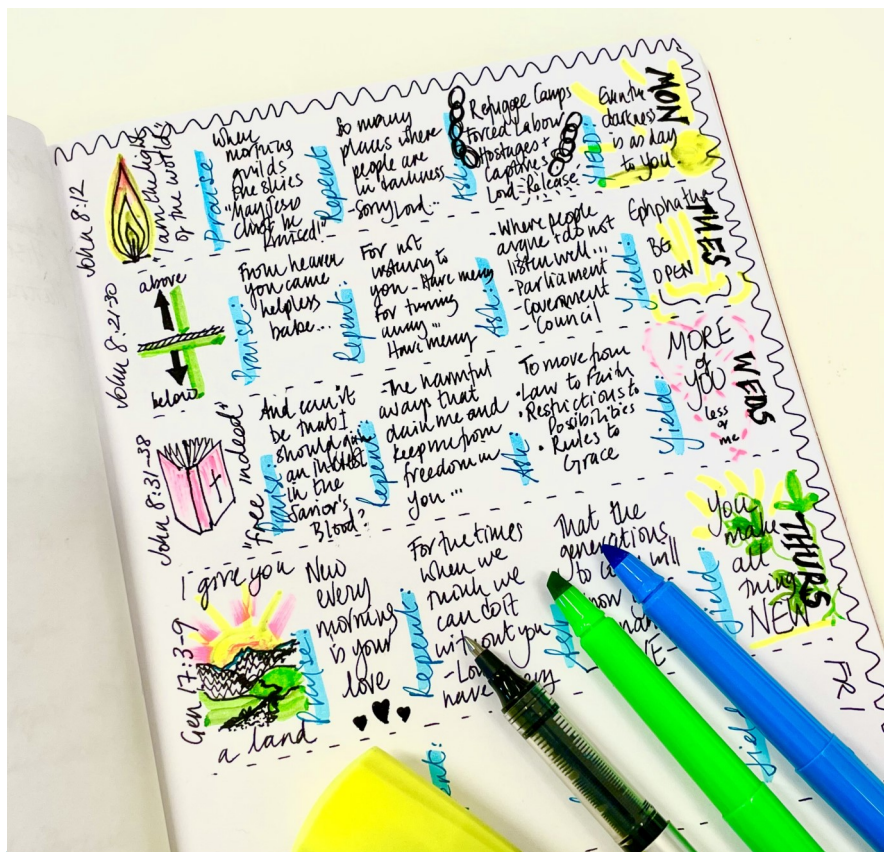 MON
John 8:12
"I am the light
of the world"
Praise
When
morning
guilds
the skies
"May Jesus
Christ be
Praised!"
Repent
So many
places where
people are
in darkness
- Sorry Lord...
Ask:
Refugee Camps
Forced Labour
Hostages +
Captives
Lord - Release
YIELD:
Even the
darkness
is as day
to you -
TUES
John 8:21-30
above
below
Praise:
From heaven
you came
helpless
babe...
Repent:
For not
listening to
you - Have mercy
For turning
away...
Have mercy
Ask:
- Where people
argue + do not
listen well...
- Parliament
- Government
- Council
Yield:
Ephphatha
BE
OPEN
WEDS
John 8:31-38
"free indeed"
Praise:
And can it
be that I
should gain
an interest
in the
Savior's
Blood?
Repent:
- The harmful
ways that
claim me and
keep me from
freedom in
you...
Ask:
To move from
• Law to Faith
• Restrictions to
Possibilities
• Rules to
Grace
Yield:
MORE
of
YOU
less
of
me
THURS
Gen 17:3-9
I give you
a land
Praise:
New
every
morning
is your
love
Repent:
For the times
when we
think we
can do it
without you
- Lord
have mercy
That the
generations
to will
Yield:
You
make
all
things
NEW
FRI
Yield: